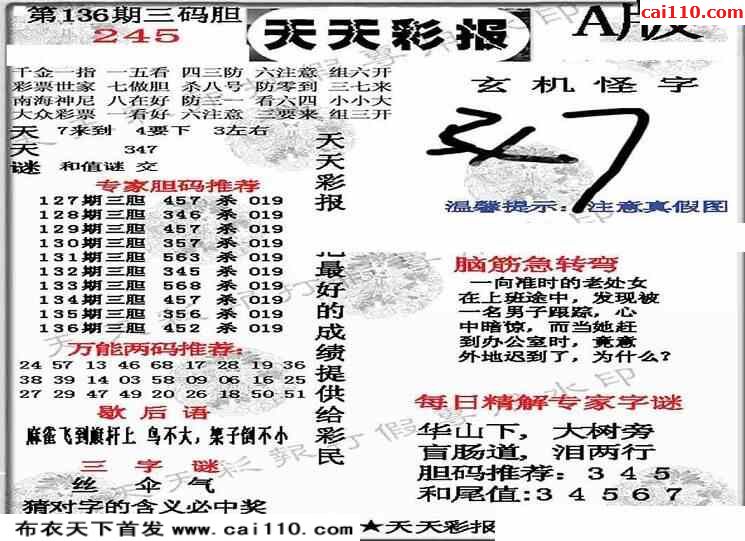 第136期三码胆
245
天天彩报
A版
cai110.com
千金一指 一五看 四三防 六注意 组六开
彩票世家 七做胆 杀八号 防零到 三七来
南海神尼 八在好 防三一 看六四 小小大
大众彩票 一看好 六注意 三要来 组三开
天 7来到 4要下 3左右
天 347
谜 和值谜 交
专家胆码推荐
127期三胆 457 杀 019
128期三胆 346 杀 019
129期三胆 457 杀 019
130期三胆 357 杀 019
131期三胆 563 杀 019
132期三胆 345 杀 019
133期三胆 568 杀 019
134期三胆 457 杀 019
135期三胆 356 杀 019
136期三胆 452 杀 019
万能两码推荐:
24 57 13 46 68 17 28 19 36
38 39 14 03 58 09 06 16 25
27 29 47 49 20 26 18 50 51
歇后语
麻雀飞到旗杆上 鸟不大，架子倒不小
三字谜
丝 伞 气
猜对字的含义必中奖
天天彩报
把最好的成绩提供给彩民
玄机怪字
347
温馨提示：注意真假图
脑筋急转弯
一向准时的老处女
在上班途中，发现被
一名男子跟踪，心
中暗惊，而当她赶
到办公室时，竟意
外地迟到了，为什么？
每日精解专家字谜
华山下，大树旁
盲肠道，泪两行
胆码推荐：345
和尾值:34567
布衣天下首发 www.cai110.com ★天天彩报